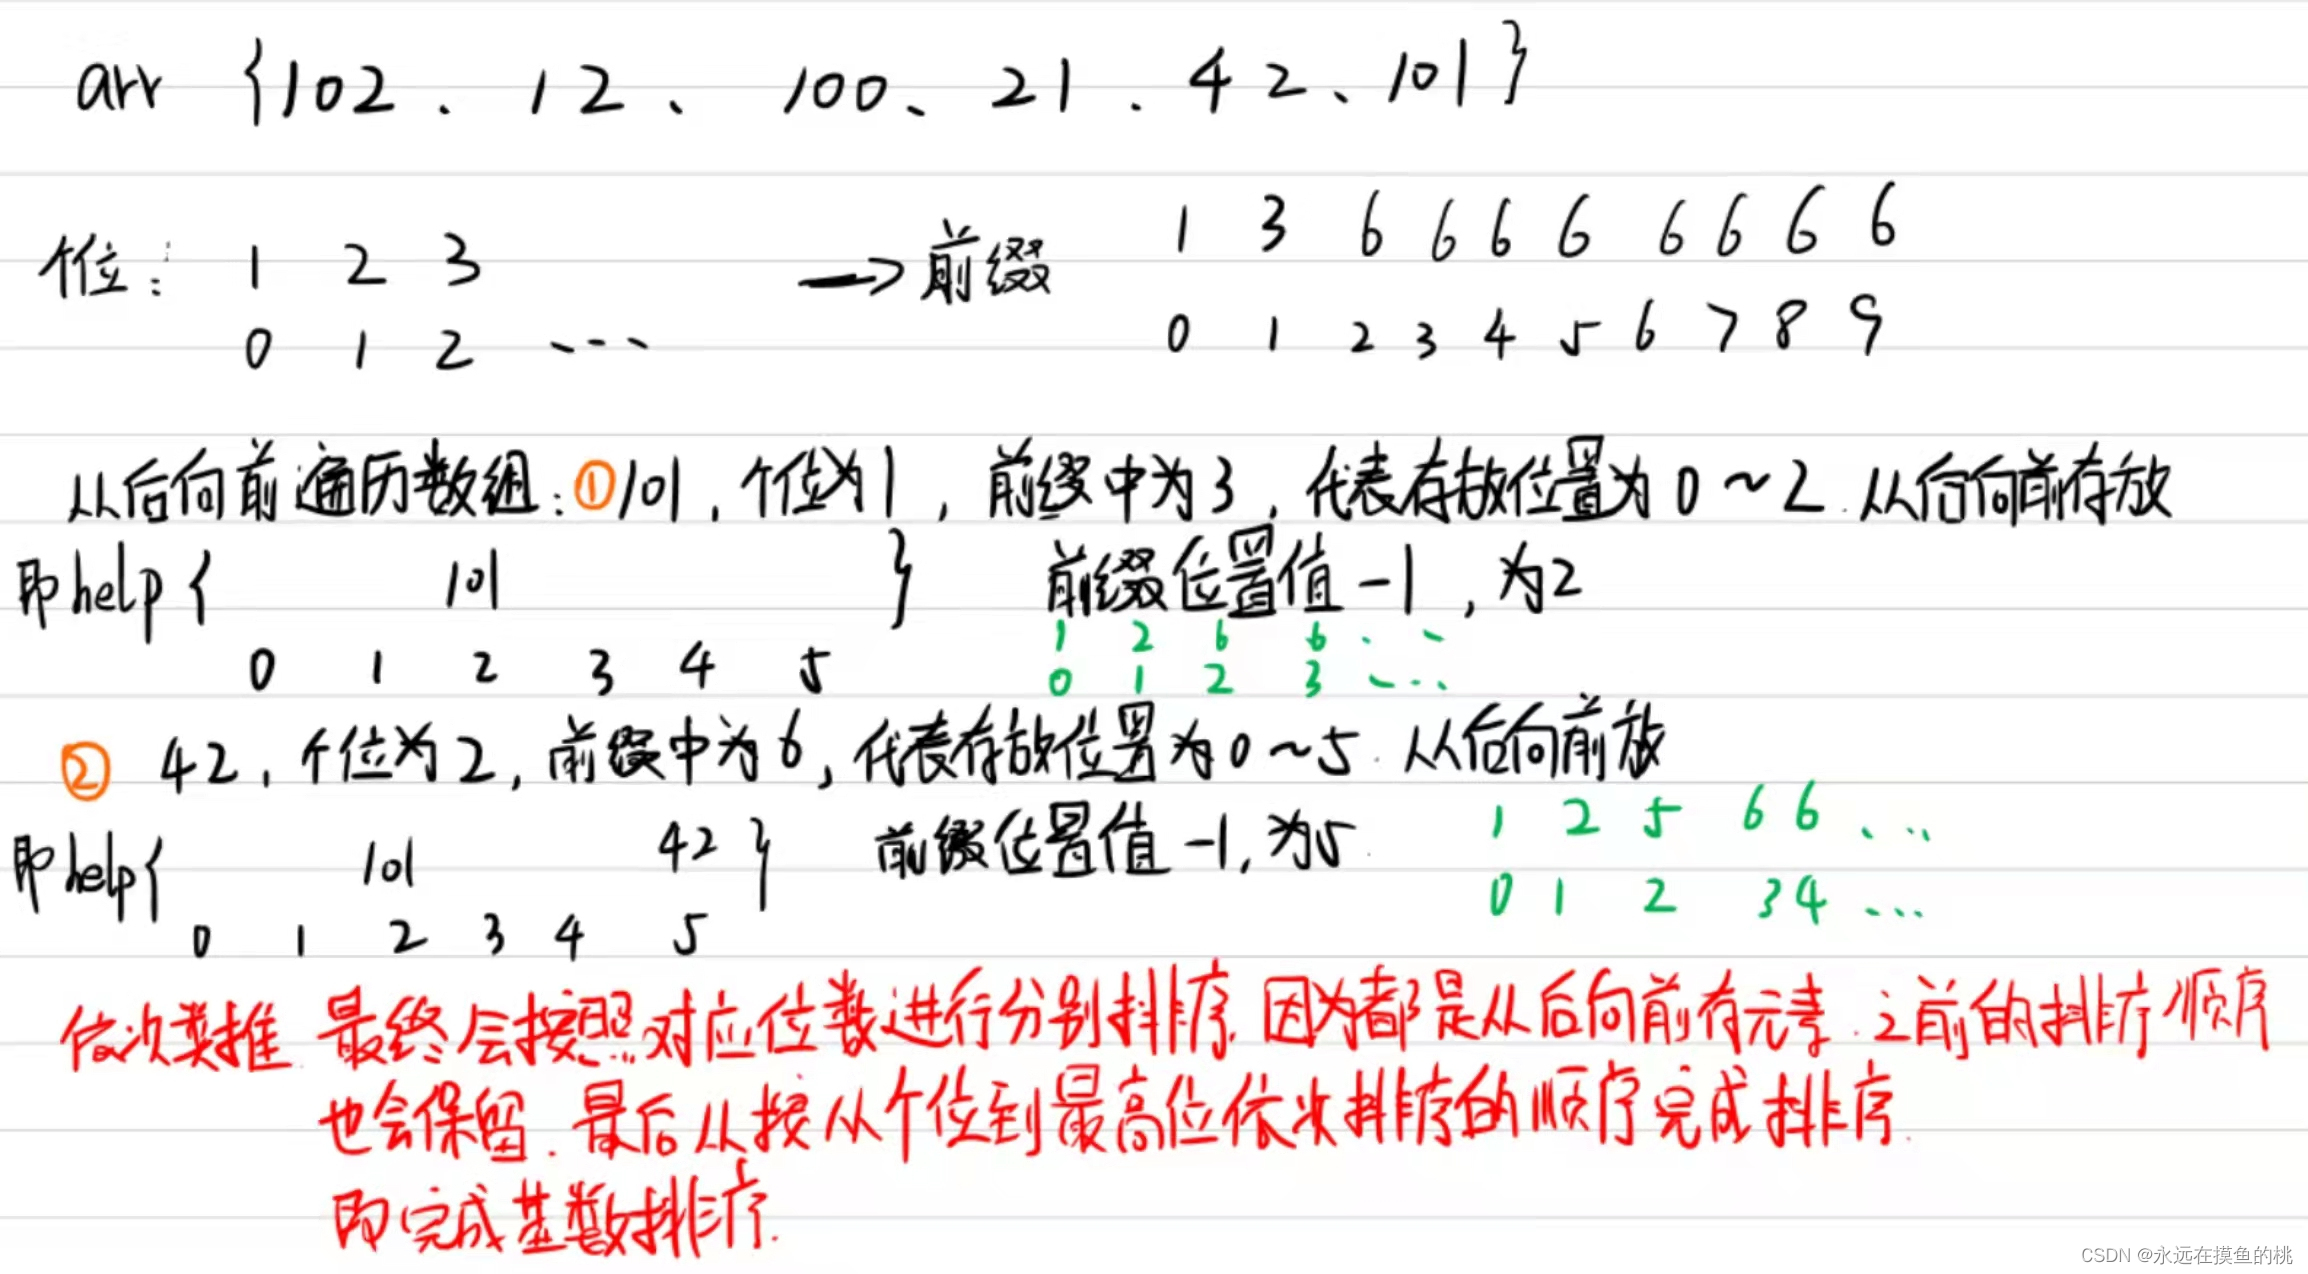 arr {102、12、100、21、42、101}
个位: 1 2 3 → 前缀 1 3 6 6 6 6 6 6 6 6
0 1 2 ... 0 1 2 3 4 5 6 7 8 9
从后向前遍历数组:①101,个位为1,前缀中为3,代表存放位置为0~2.从后向前存放
即help{ 101 } 前缀位置值-1,为2
1 2 6 6 ...
0 1 2 3 4 5 0 1 2 3 ...
② 42,个位为2,前缀中为6,代表存放位置为0~5.从后向前放
即help{ 101 42 } 前缀位置值-1,为5. 1 2 5 6 6 ...
0 1 2 3 4 5 0 1 2 3 4 ...
依次类推 最终会按照对应位数进行分别排序,因为都是从后向前存元素.之前的排序顺序
也会保留.最后从按从个位到最高位依次排序的顺序完成排序.
即完成基数排序.
CSDN @永远在摸鱼的桃